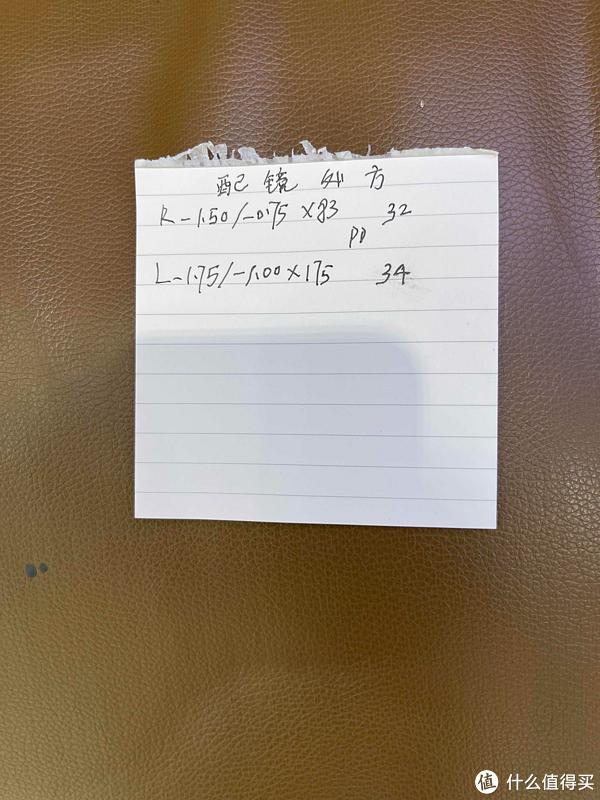 配镜处方
R -1.50/-0.75 ×83 32
PD
L -1.75/-1.00×175 34
值 什么值得买